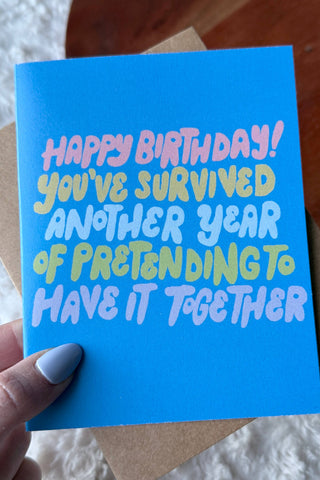 HAPPY BIRTHDAY!
YOU'VE SURVIVED
ANOTHER YEAR
OF PRETENDING TO
HAVE IT TOGETHER